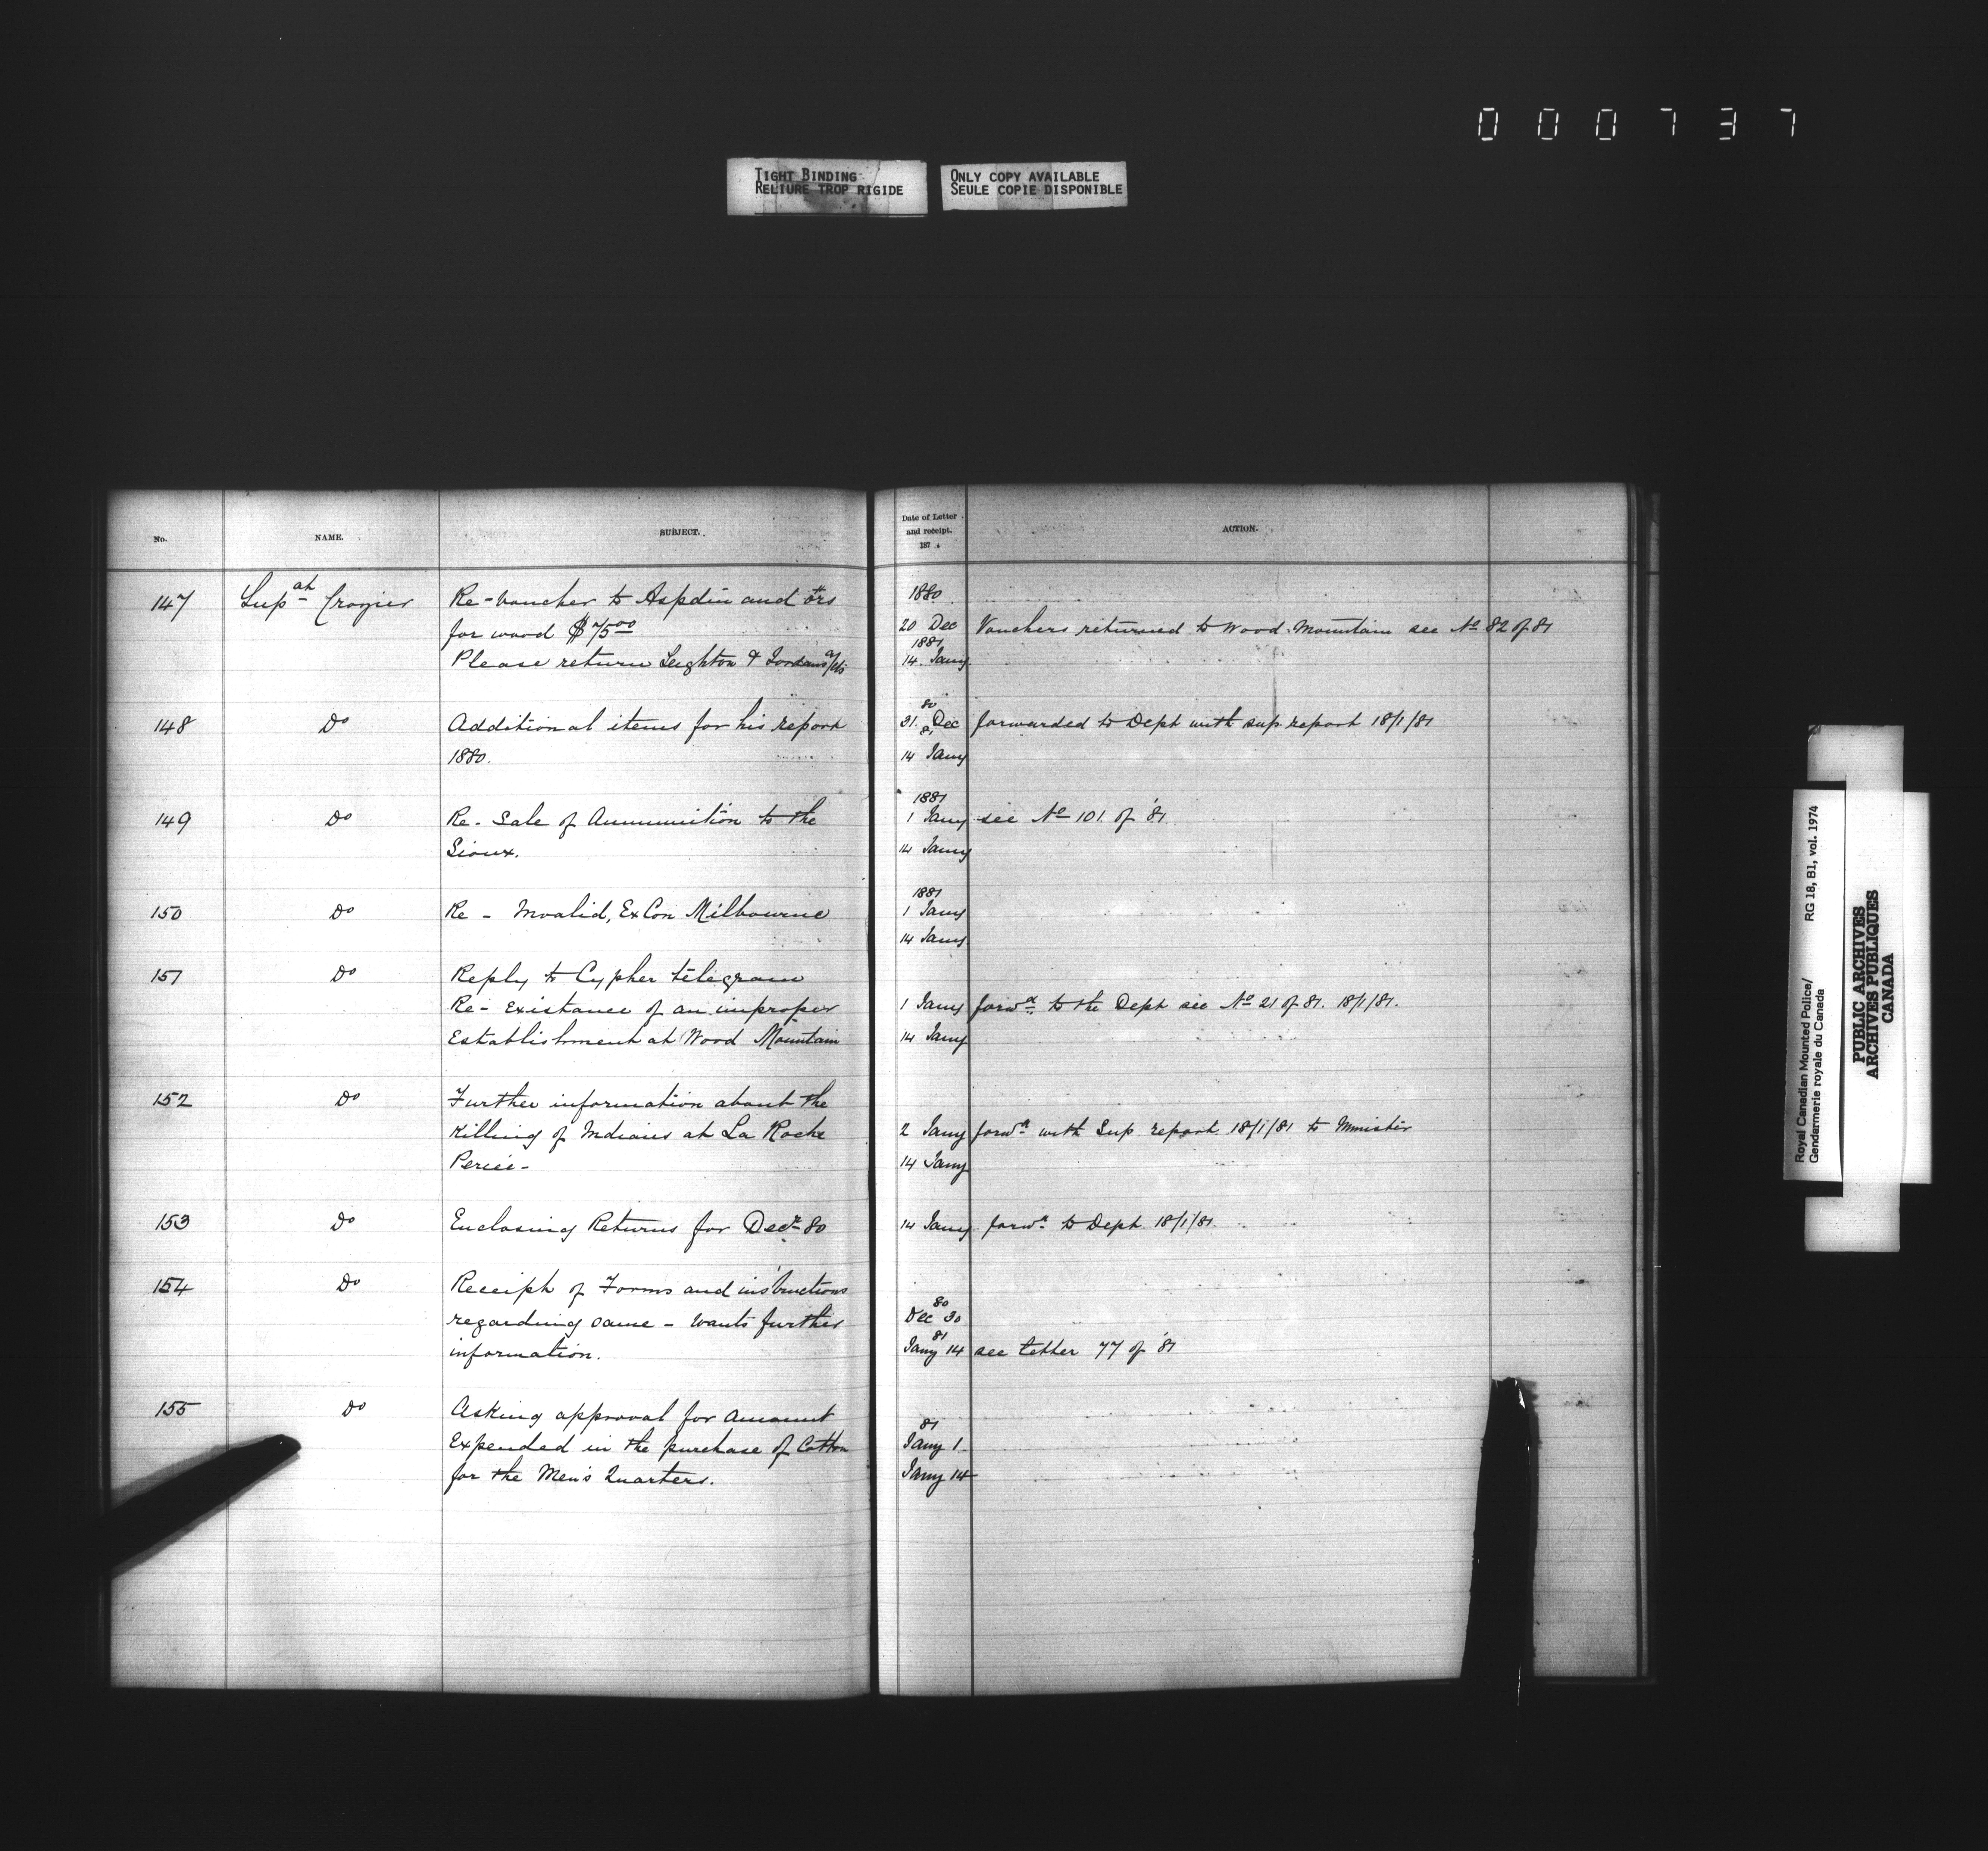 000737
TIGHT BINDING
RELIURE TROP RIGIDE
ONLY COPY AVAILABLE
SEULE COPIE DISPONIBLE
No.
NAME.
SUBJECT.
Date of Letter
and receipt.
187 .
ACTION.
147 Supat Crozier Re-Voucher to Aspdin and ors
for wood $75.00
Please return Leighton & Jordans a/cts
1880
20 Dec Vouchers returned to Wood Mountain see No 82 of 81
1881
14 Jany
148 Do Additional items for his report
1880.
80
31. Dec forwarded to Dept with sup report 18/1/81
81
14 Jany
149 Do Re- Sale of Ammunition to the
Sioux.
1881
1 Jany see No 101 of '81
14 Jany
150 Do Re - Invalid, Ex Con Milbourne
1881
1 Jany
14 Jany
151 Do Reply to Cypher telegram
Re- Existance of an improper
Establishment at Wood Mountain
1 Jany forwd to the Dept see No 21 of 81. 18/1/81.
14 Jany
152 Do Further information about the
Killing of Indians at La Roche
Perceé-
2 Jany forwd with Sup report 18/1/81 to Minister
14 Jany
153 Do Enclosing Returns for Decr 80
14 Jany forwd to Dept 18/1/81
154 Do Receipt of Forms and instructions
regarding same - wants further
information.
80
Dec 30
81
Jany 14 see letter 77 of '81
155 Do Asking approval for amount
Expended in the purchase of Cotton
for the Men's Quarters.
81
Jany 1
Jany 14
Royal Canadian Mounted Police/ RG 18, B1, vol. 1974
Gendarmerie royale du Canada
PUBLIC ARCHIVES
ARCHIVES PUBLIQUES
CANADA